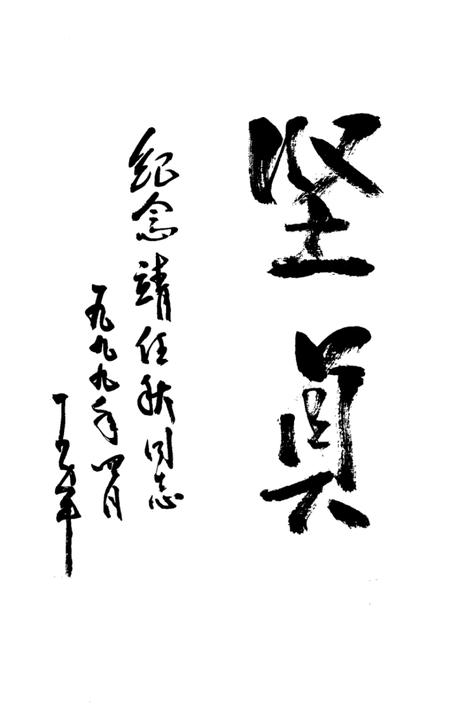 坚贞
纪念靖任秋同志
一九九九年四月